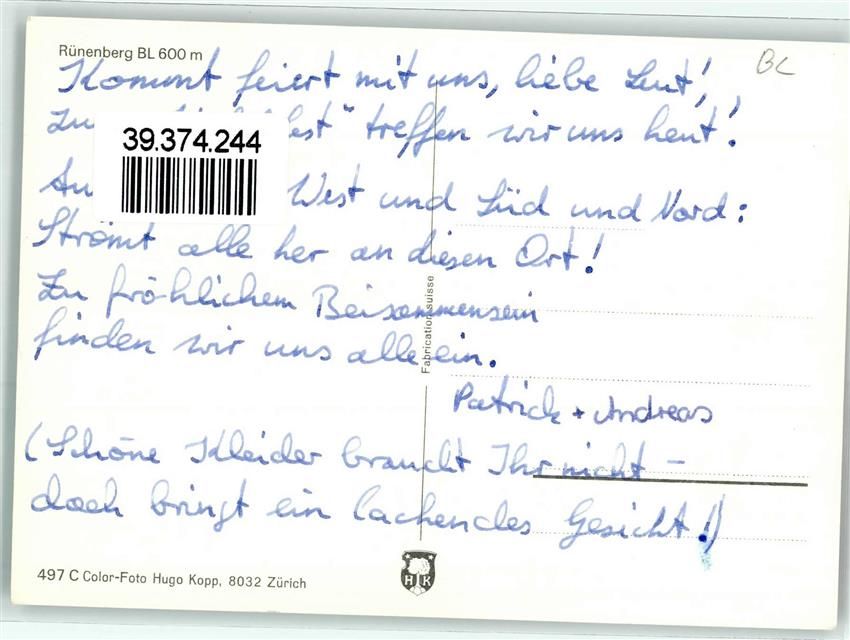 Rünenberg BL 600 m
BL
Kommt feiert mit uns, liebe Leut',
zu est" treffen wir uns heut'.
39.374.244
West und Süd und Nord:
Strömt alle her an diesen Ort!
Zu fröhlichem Beisammensein
finden wir uns alle ein.
Fabrication suisse
Patrick + Andreas
(Schöne Kleider braucht Ihr nicht –
doch bringt ein lachendes Gesicht!)
497 C Color-Foto Hugo Kopp, 8032 Zürich
H K